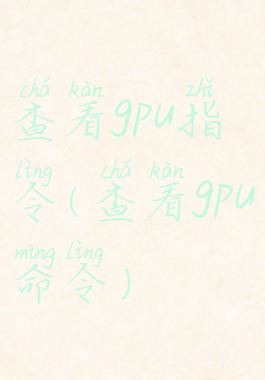 chá kàn zhǐ
查看gpu指
lìng chá kàn
令(查看gpu
mìng lìng
命令)